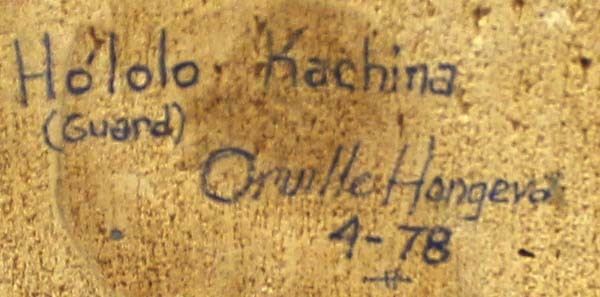 Ho'lolo Kachina
(Guard)
Orville Hongeva
4-78